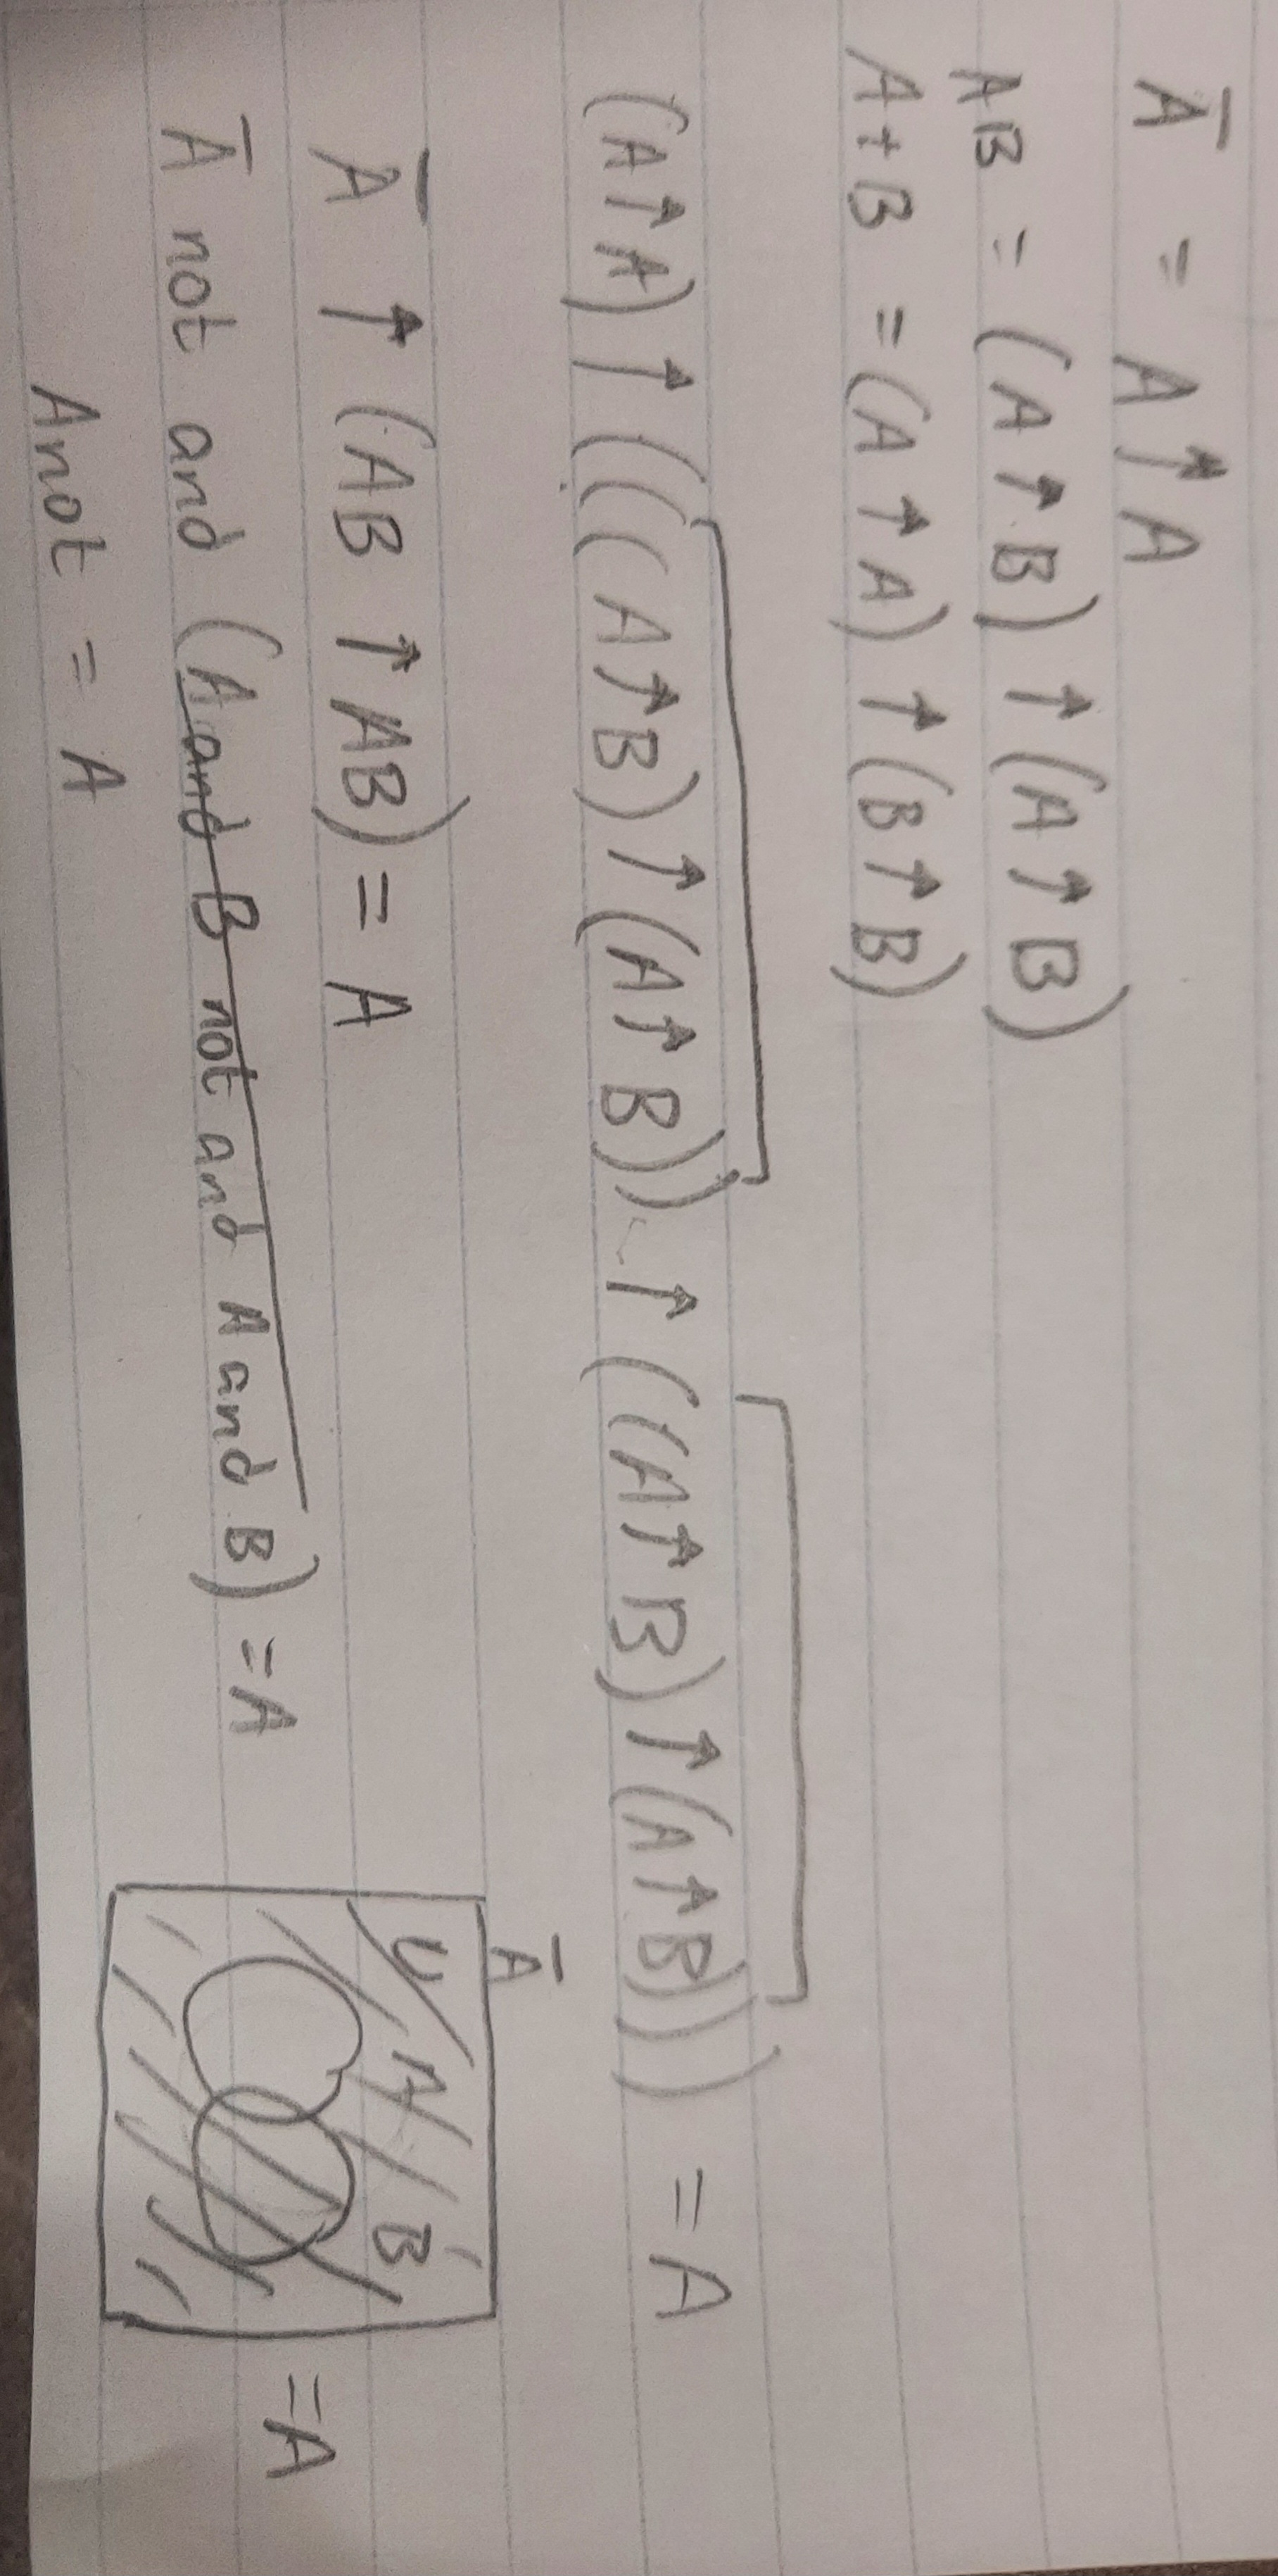 A̅ = A ↑ A
AB = (A ↑ B) ↑ (A ↑ B)
A + B = (A ↑ A) ↑ (B ↑ B)
(A ↑ A) ↑ (((( A ↑ B) ↑ (A ↑ B)) ↑ ((A ↑ B) ↑ (A ↑ B))) = A
A̅
U A B
= A
A̅ ↑ (AB ↑ AB) = A
A̅ not and (A and B not and A and B) = A
Anot = A